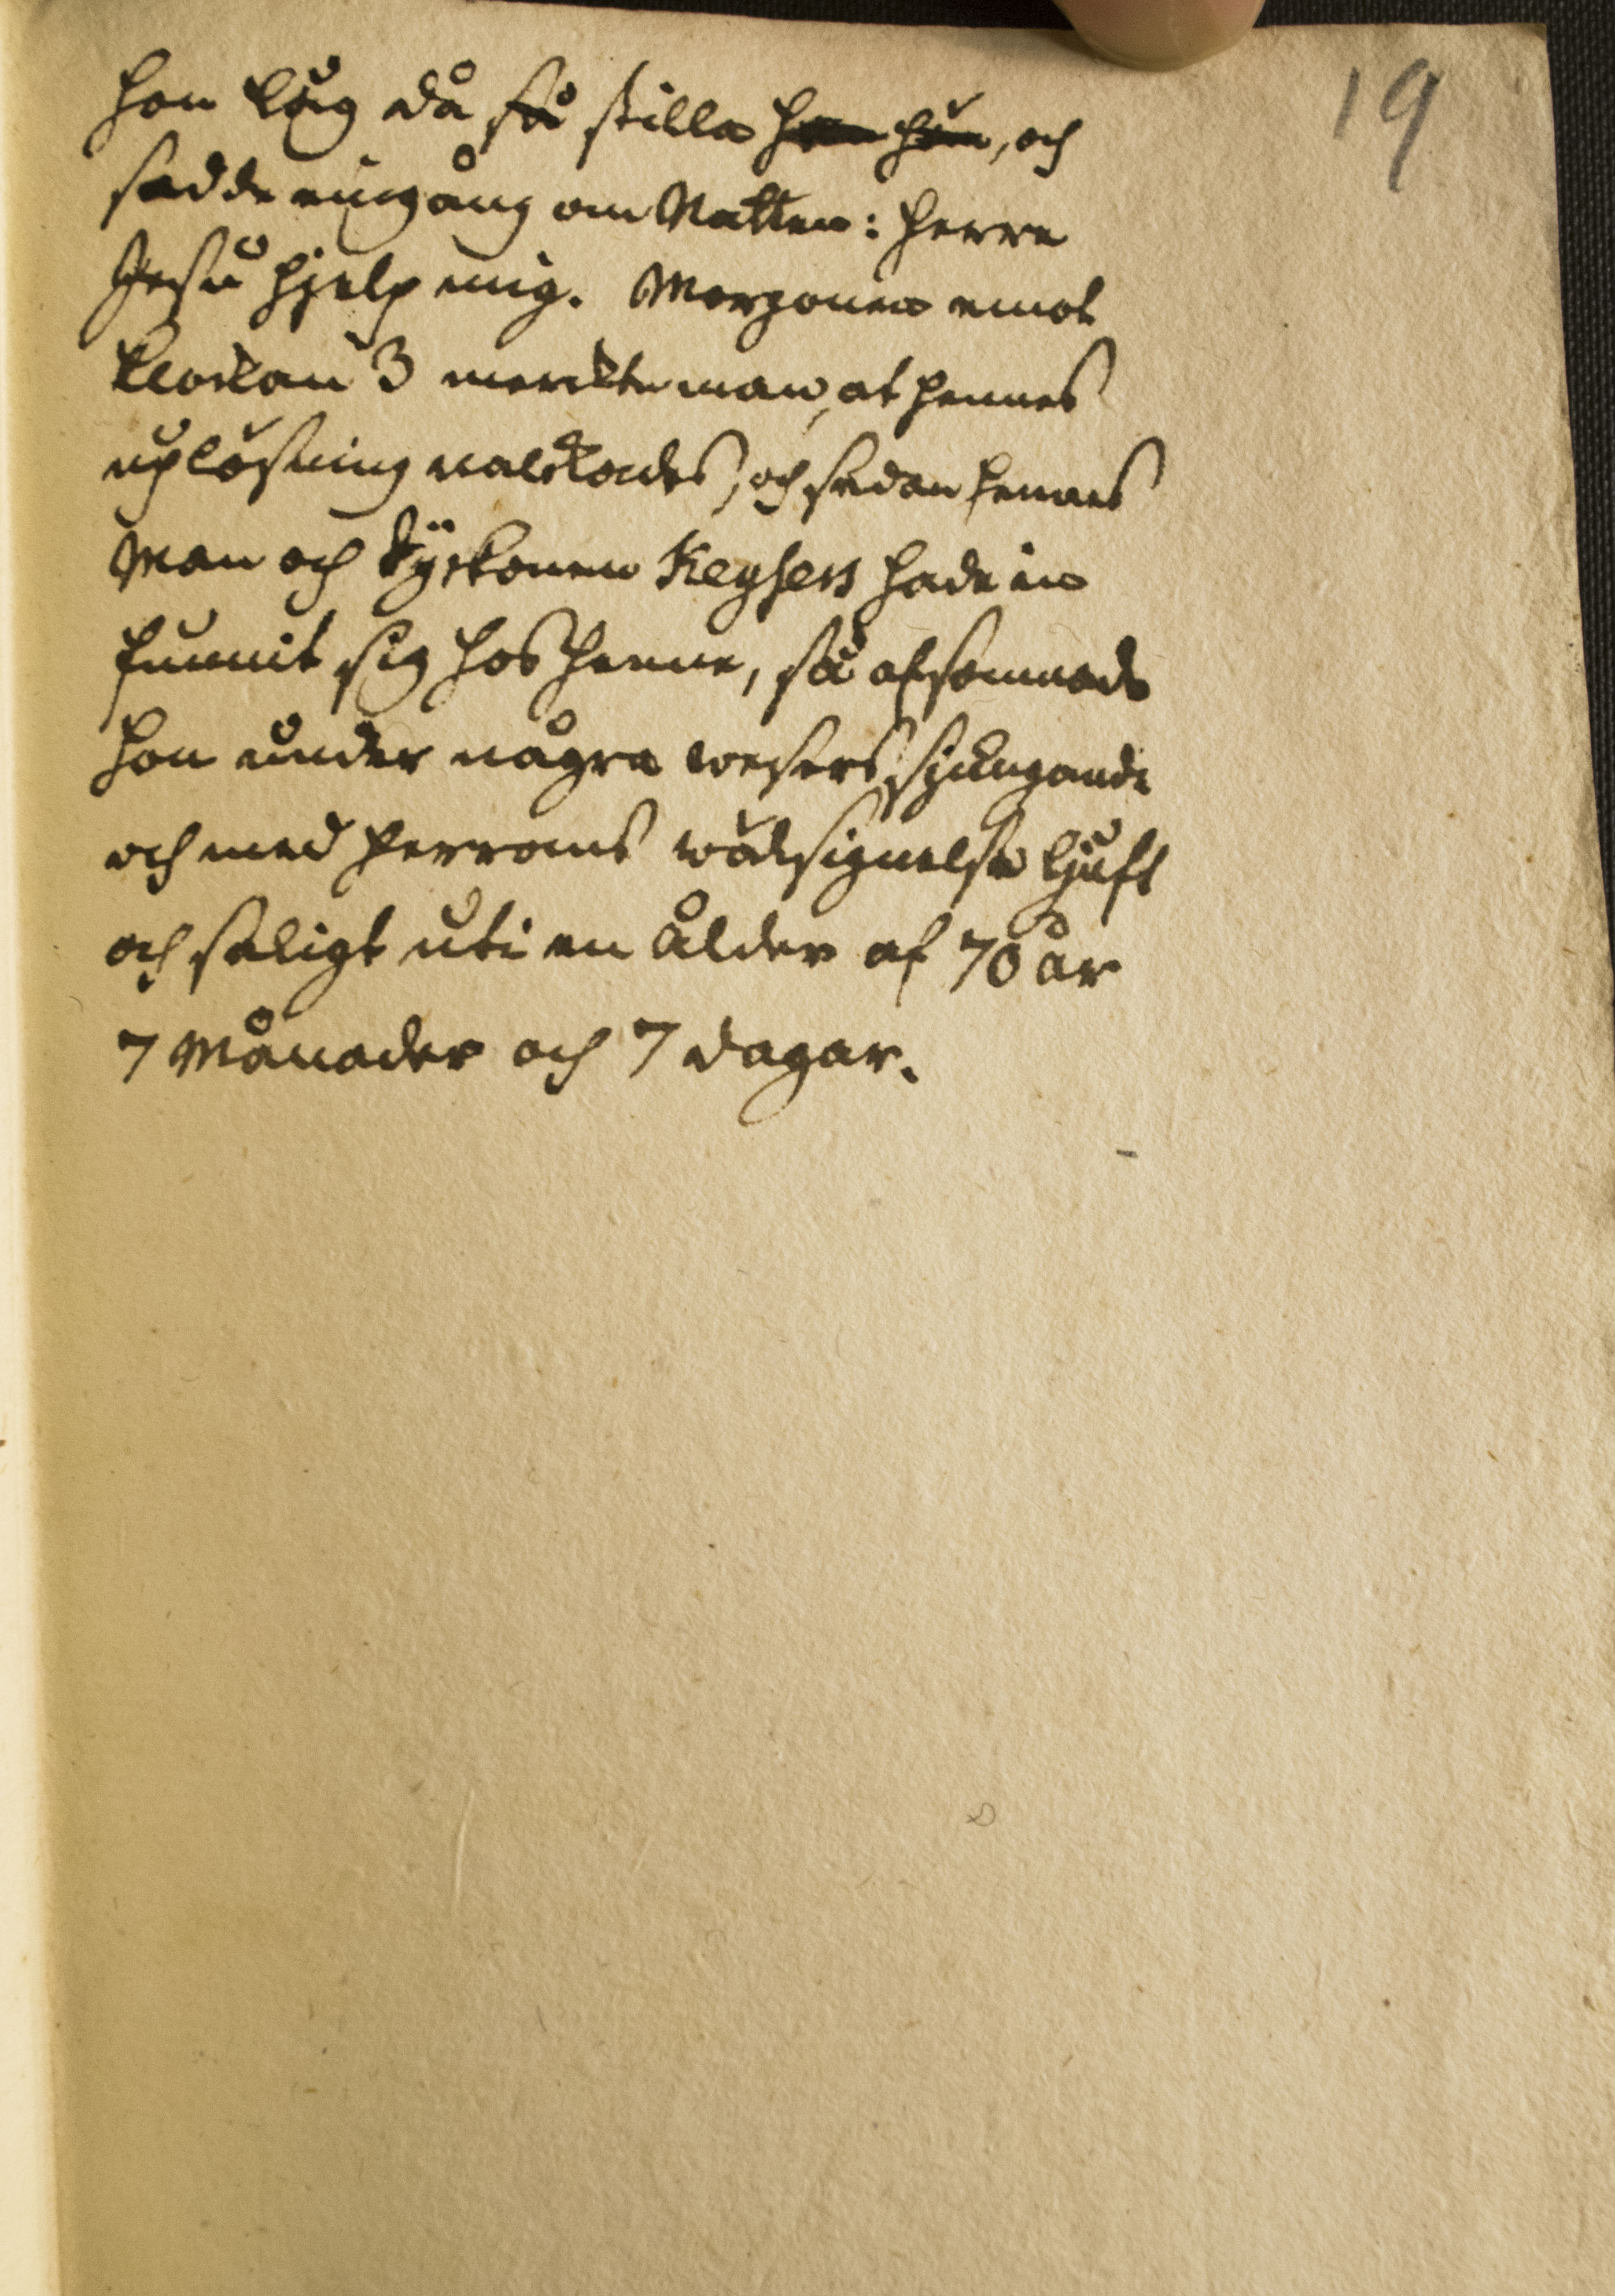 19
hon låg då så stilla hon hem, och
sade en gång om Natten: Herre
Jesu hjelp mig. Morgonen emot
klockan 3 merckte man, at hennes
uplösning nalckades, och sedan hennes
Man och Syskonen Keysers hade in
funnit sig hos henne, så afsomnade
hon under några versers sjungande
och med Herrans wälsignelse ljuft
och saligt uti en ålder af 70 år
7 Månader och 7 dagar.